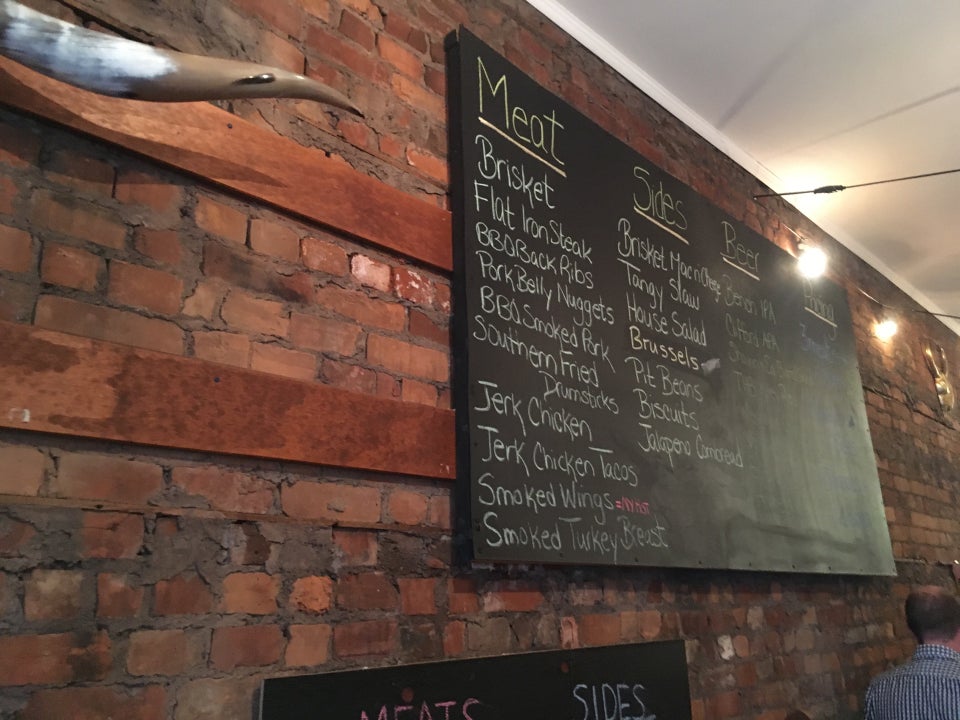 Meat
Brisket
Flat Iron Steak
BBQ Back Ribs
Pork Belly Nuggets
BBQ Smoked Pork
Southern Fried
Drumsticks
Jerk Chicken
Jerk Chicken Tacos
Smoked Wings
Smoked Turkey Breast
Sides
Brisket Mac n Chese
Tangy Slaw
House Salad
Brussels
Pit Beans
Biscuits
Jalapeno Cornbread
Beer
IPA
MEATS
SIDES